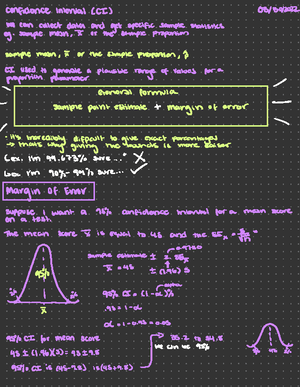 Confidence Interval (CI)
we can collect data and get specific sample statistics
eg. sample mean, x̄ or the sample proportion
sample mean, x̄ or the sample proportion, p̂
CI used to generate a plausible range of values for a
proportion parameter
General formula
sample point estimate + margin of error
· it's incredibly difficult to give exact percentages
→ that's why giving two bounds is more
ex: I'm 99.673% sure..." X
I'm 90%-99% sure... ✓
Margin of Error
suppose I want a 95% confidence interval for a mean score
on a test.
The mean score x̄ is equal to 45 and the
sample estimate ±
x̄ = 45 ± (1.96)
95%
x̄
95% CI = (1-α)
.95 = 1-α
α = 1-0.95 = 0.05
95% CI for mean score
we can be 95%